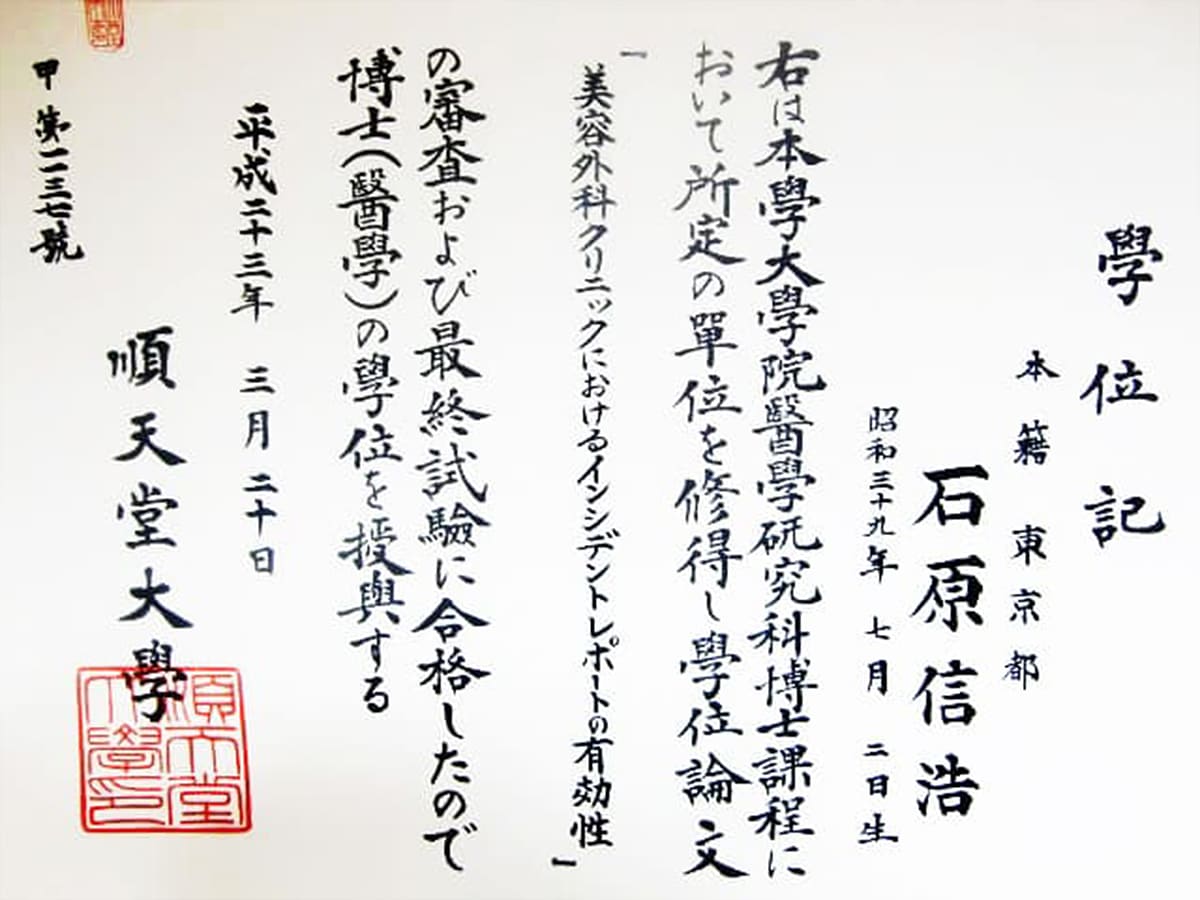 學位記
本籍 東京都
石原信浩
昭和三十九年 七月 二日生
右は本學大學院醫學研究科博士課程に
おいて所定の單位を修得し學位論文
「美容外科クリニックにおけるインシデントレポートの有効性」
の審査および最終試驗に合格したので
博士(醫學)の學位を授與する
平成二十三年 三月 二十日
順天堂大學
順天堂大學印